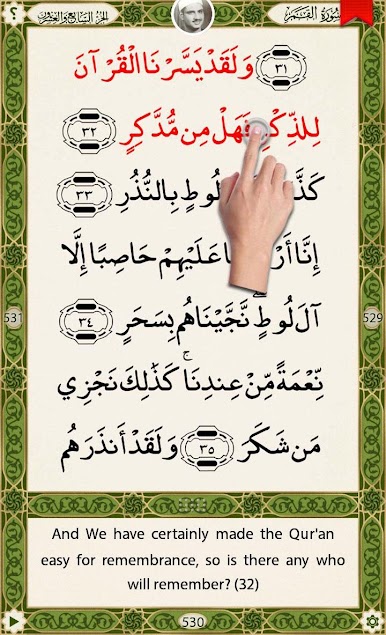 ؟
الجزء السابع والعشرون
سورة القمر
﴿٣١﴾ وَلَقَدْ يَسَّرْنَا الْقُرْآنَ
لِلذِّكْرِ فَهَلْ مِن مُّدَّكِرٍ ﴿٣٢﴾
لُوطٍ بِالنُّذُرِ ﴿٣٣﴾
إِنَّا عَلَيْهِمْ حَاصِبًا إِلَّا
آلَ لُوطٍ ۖ نَّجَّيْنَاهُم بِسَحَرٍ ﴿٣٤﴾
نِّعْمَةً مِّنْ عِندِنَا ۚ كَذَٰلِكَ نَجْزِي
مَن شَكَرَ ﴿٣٥﴾ وَلَقَدْ أَنذَرَهُم
531
529
And We have certainly made the Qur'an
easy for remembrance, so is there any who
will remember? (32)
530